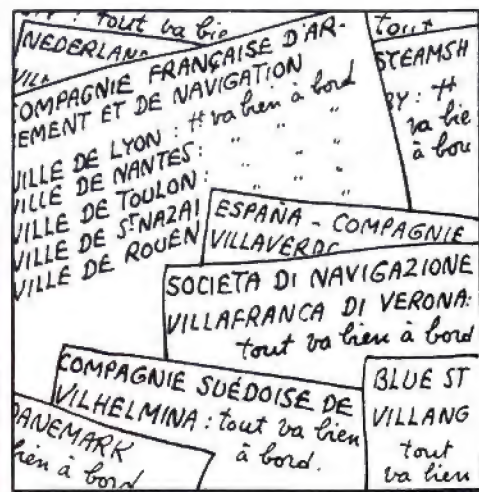 : tout va bie
NEDERLAND
VILL
COMPAGNIE FRANÇAISE D'AR-
EMENT ET DE NAVIGATION
VILLE DE LYON : tt va bien à bord
VILLE DE NANTES : " " "
VILLE DE TOULON : " " "
VILLE DE ST NAZAI
VILLE DE ROUEN
tout
STEAMSH
BY : tt
va bie
à bor
ESPAÑA - COMPAGNIE
VILLAVERDE
SOCIETA DI NAVIGAZIONE
VILLAFRANCA DI VERONA :
tout va bien à bord
COMPAGNIE SUÉDOISE DE
VILHELMINA : tout va bien
à bord.
BLUE ST
VILLANG
tout
va bien
DANEMARK
bien à bord